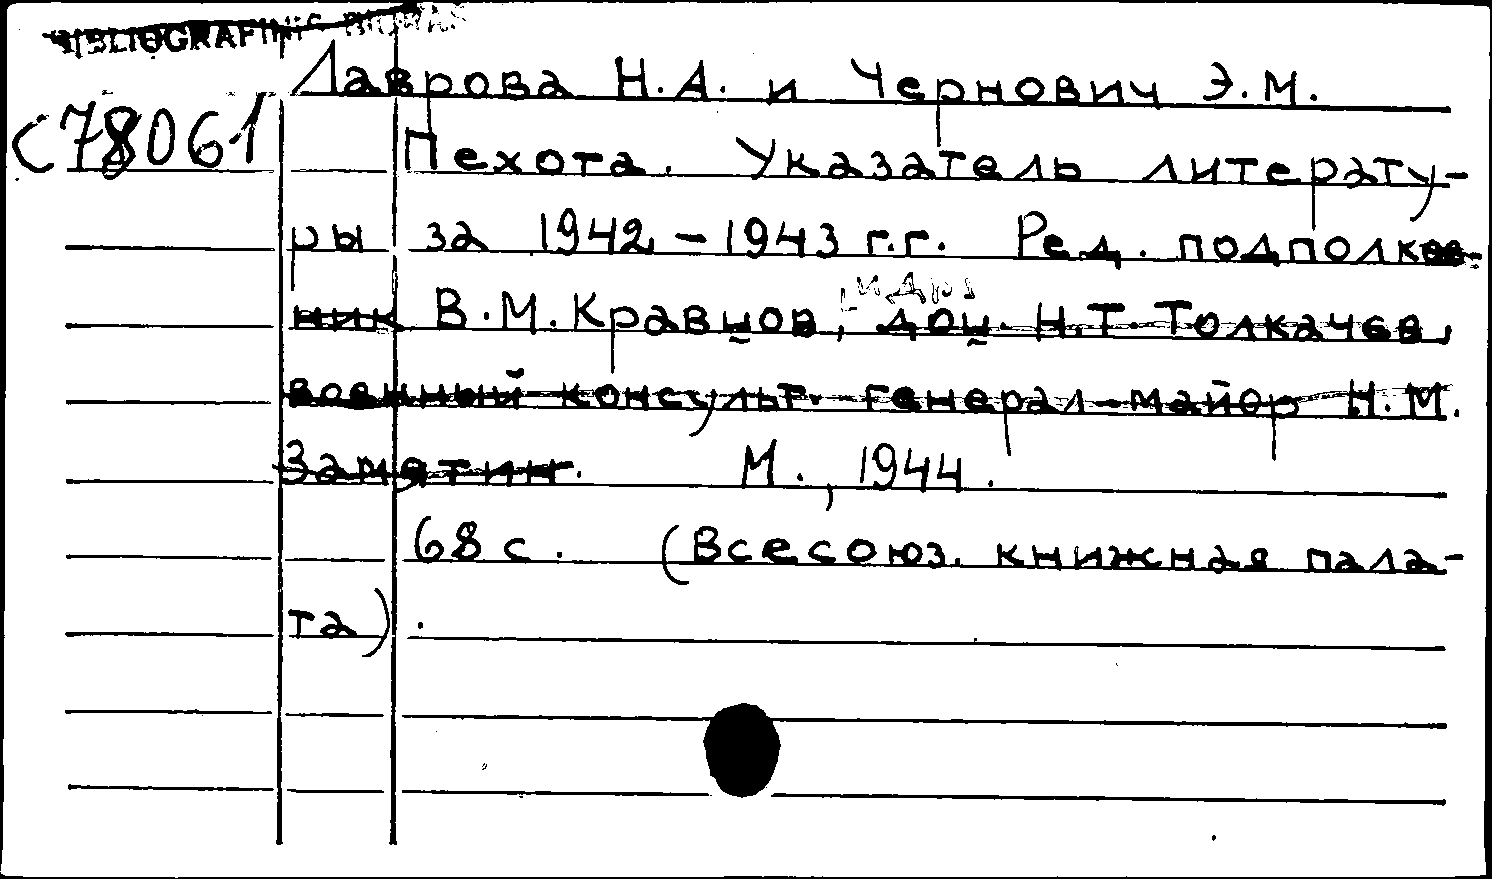 BIBLIOGRAFINIS
Лаврова Н.А. и Чернович Э.М.
С78061
Пехота. Указатель литерату-
ры за 1942-1943 г.г. Ред. подполков-
ник В.М. Кравцов, и др. доц. Н.Т. Толкачев,
военный консульт. генерал-майор Н.М.
Замятин. М., 1944.
68 с. (Всесоюз. книжная пала-
та).